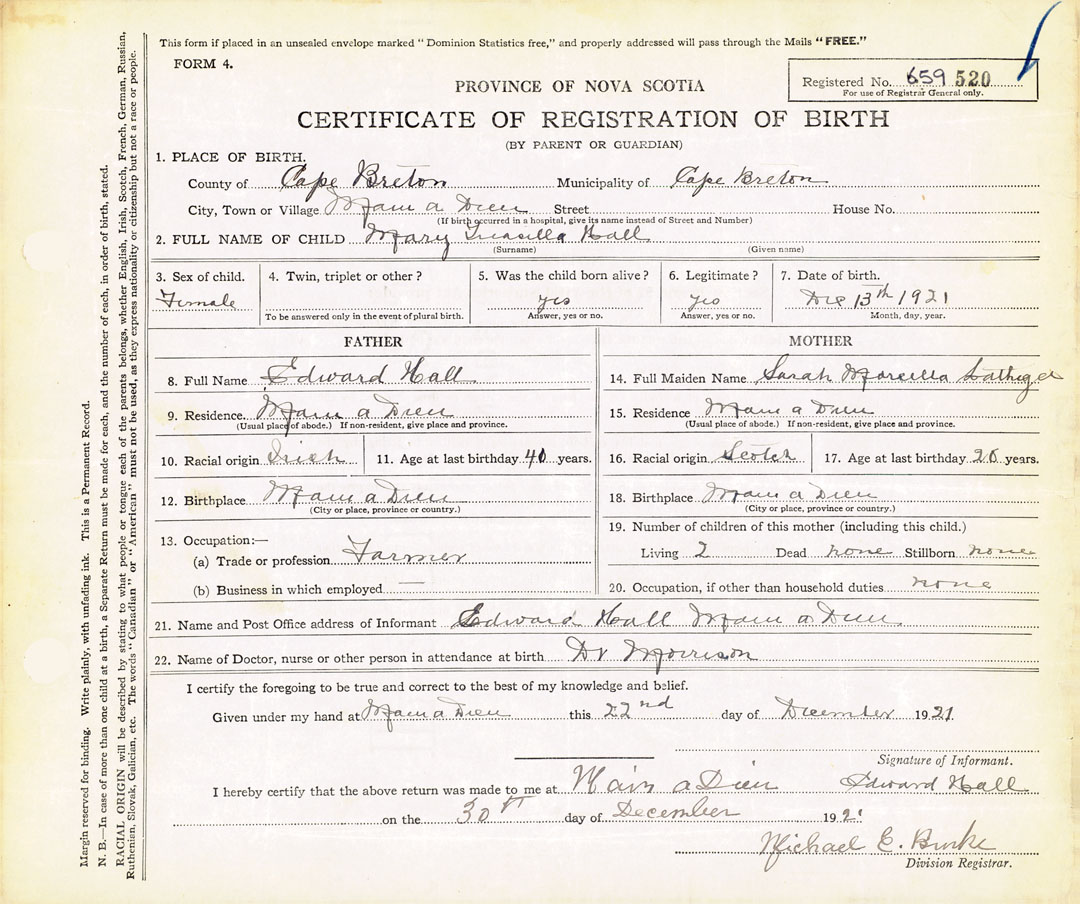 This form if placed in an unsealed envelope marked "Dominion Statistics free," and properly addressed will pass through the Mails "FREE."
FORM 4.
Registered No. 659 520
For use of Registrar General only.
PROVINCE OF NOVA SCOTIA
CERTIFICATE OF REGISTRATION OF BIRTH
(BY PARENT OR GUARDIAN)
1. PLACE OF BIRTH.
County of Cape Breton Municipality of Cape Breton
City, Town or Village Main a Dieu Street House No.
(If birth occurred in a hospital, give its name instead of Street and Number)
2. FULL NAME OF CHILD Mary Hall
(Surname) (Given name)
3. Sex of child. 4. Twin, triplet or other? 5. Was the child born alive? 6. Legitimate? 7. Date of birth.
Female yes yes Dec 13th 1921
To be answered only in the event of plural birth. Answer, yes or no. Answer, yes or no. Month, day, year.
FATHER MOTHER
8. Full Name Edward Hall 14. Full Maiden Name Sarah
9. Residence. Main a Dieu 15. Residence Main a Dieu
(Usual place of abode.) If non-resident, give place and province. (Usual place of abode.) If non-resident, give place and province.
10. Racial origin Irish 11. Age at last birthday 40 years. 16. Racial origin Scotch 17. Age at last birthday years.
12. Birthplace Main a Dieu 18. Birthplace Main a Dieu
(City or place, province or country.) (City or place, province or country.)
13. Occupation:— 19. Number of children of this mother (including this child.)
(a) Trade or profession Farmer Living 2 Dead none Stillborn none
(b) Business in which employed — 20. Occupation, if other than household duties none
21. Name and Post Office address of Informant Edward Hall Main a Dieu
22. Name of Doctor, nurse or other person in attendance at birth Dr Morrison
I certify the foregoing to be true and correct to the best of my knowledge and belief.
Given under my hand at Main a Dieu this 22nd day of December 1921.
Signature of Informant.
I hereby certify that the above return was made to me at Main a Dieu Edward Hall
on the 30th day of December 192
Michael E. Burke
Division Registrar.
Margin reserved for binding. Write plainly, with unfading ink. This is a Permanent Record.
N. B.—In case of more than one child at a birth, a Separate Return must be made for each, and the number of each, in order of birth, stated.
RACIAL ORIGIN will be described by stating to what people or tongue each of the parents belongs, whether English, Irish, Scotch, French, German, Russian,
Ruthenian, Slovak, Galician, etc. The words "Canadian" or "American" must not be used, as they express nationality or citizenship but not a race or people.